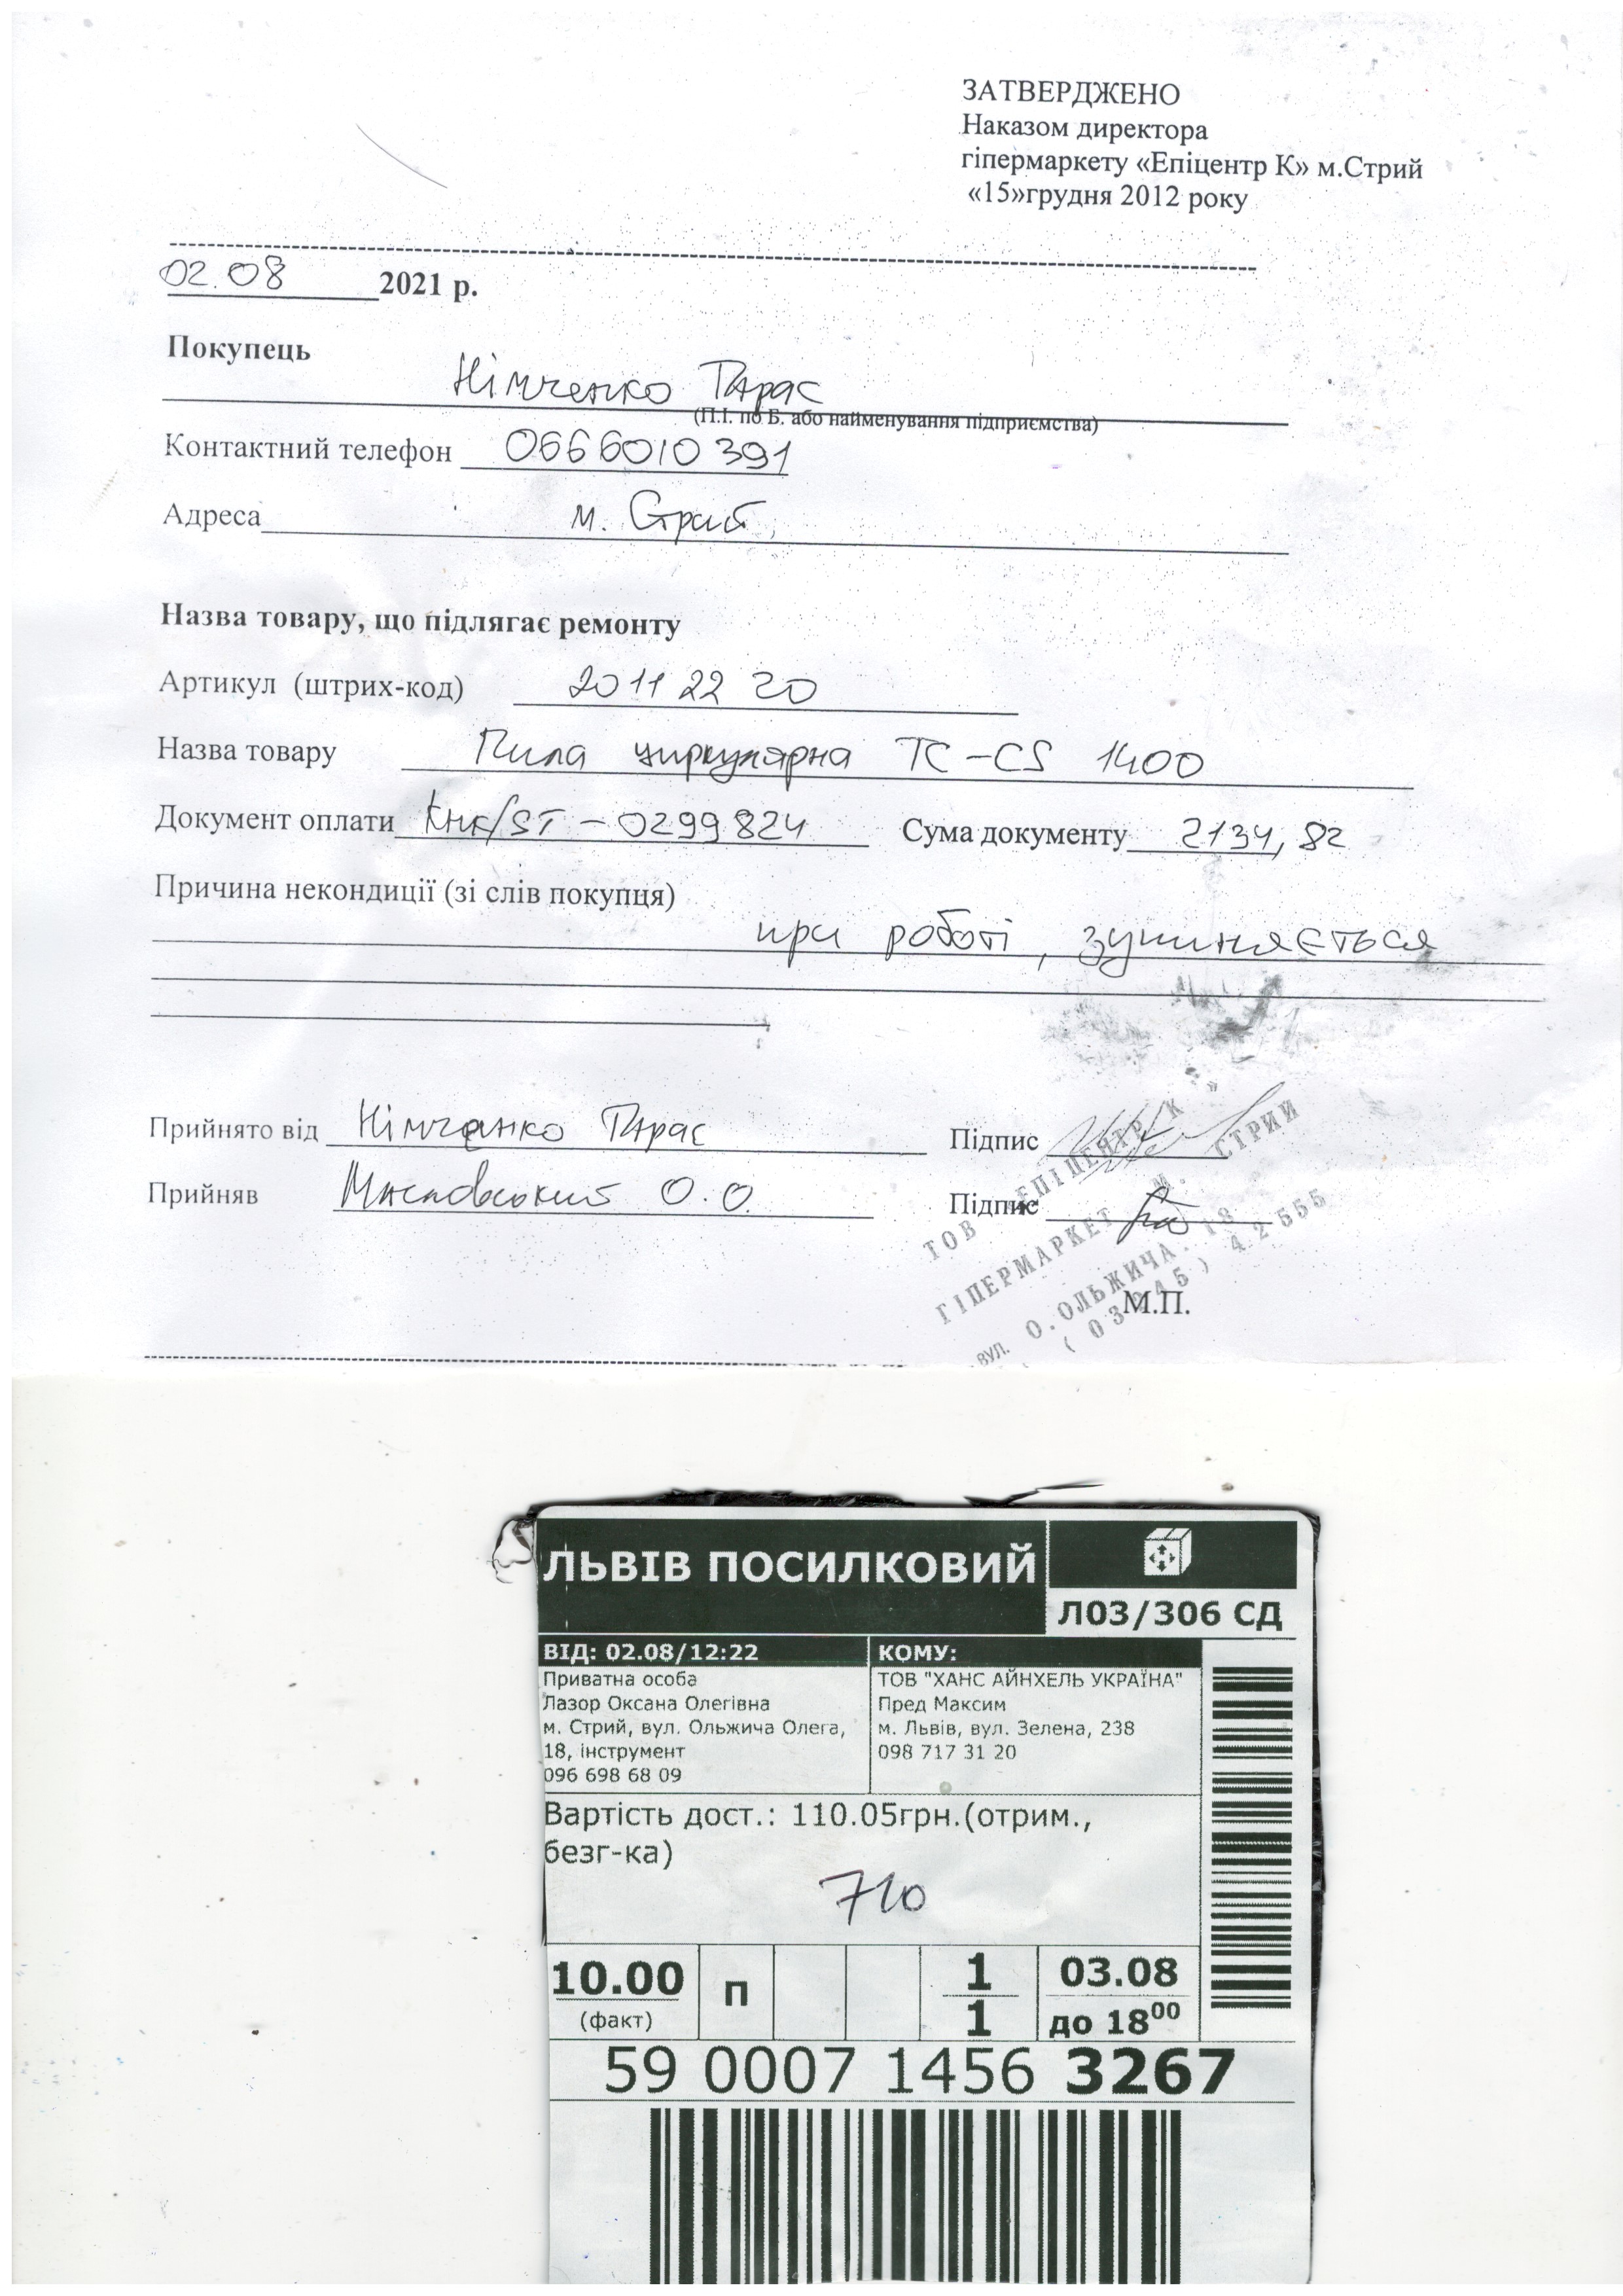 ЗАТВЕРДЖЕНО
Наказом директора
гіпермаркету «Епіцентр К» м.Стрий
«15»грудня 2012 року
02.08 2021 р.
Покупець
Німченко Тарас
(П.І. по Б. або найменування підприємства)
Контактний телефон 0666010391
Адреса м. Стрий,
Назва товару, що підлягає ремонту
Артикул (штрих-код) 20112220
Назва товару Пила циркулярна TC-CS 1400
Документ оплати Кнк/ST-0299824 Сума документу 2134,82
Причина некондиції (зі слів покупця)
при роботі, зупиняється
Прийнято від Німченко Тарас Підпис
Прийняв О.О. Підпис
ТОВ "ЕПІЦЕНТР К"
ГІПЕРМАРКЕТ М. СТРИЙ
ВУЛ. О.ОЛЬЖИЧА. 18
(03245) 42555
М.П.
ЛЬВІВ ПОСИЛКОВИЙ
Л03/306 СД
ВІД: 02.08/12:22
Приватна особа
Лазор Оксана Олегівна
м. Стрий, вул. Ольжича Олега,
18, інструмент
096 698 68 09
КОМУ:
ТОВ "ХАНС АЙНХЕЛЬ УКРАЇНА"
Пред Максим
м. Львів, вул. Зелена, 238
098 717 31 20
Вартість дост.: 110.05грн.(отрим.,
безг-ка)
710
10.00
(факт)
П
1
1
03.08
до 18⁰⁰
59 0007 1456 3267